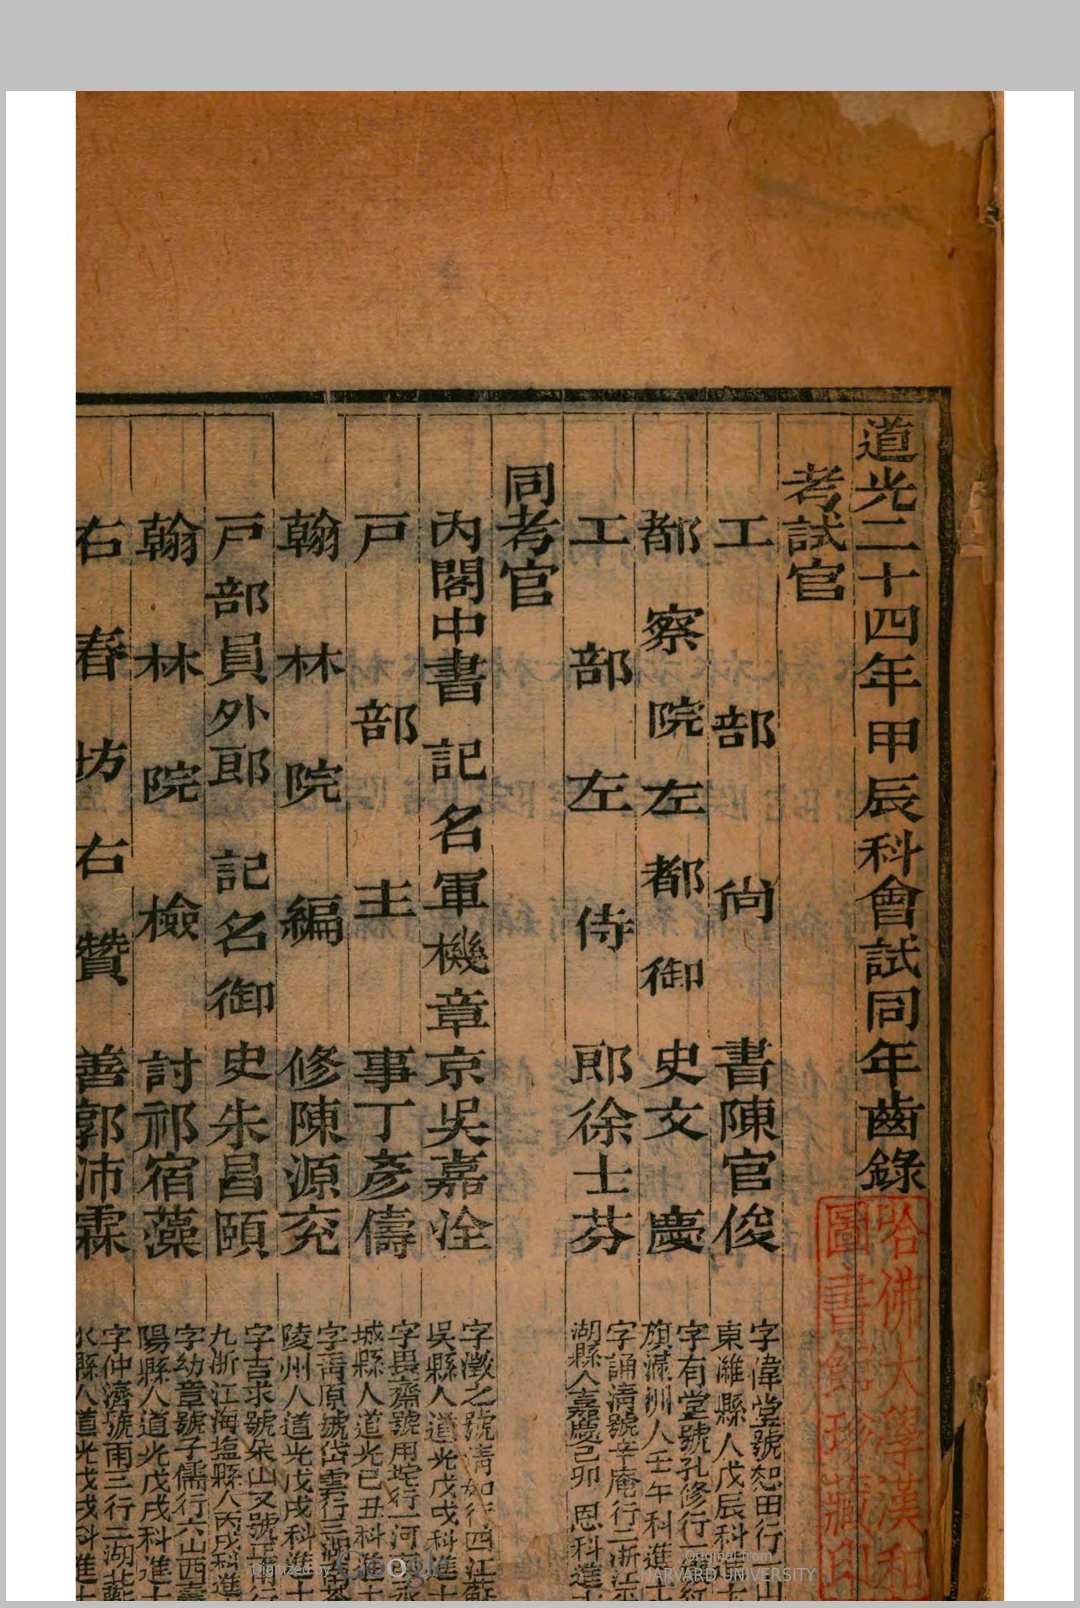 道光二十四年甲辰科會試同年齒錄
哈佛大學漢和
圖書館珍藏印
考試官
工部尚書陳官俊
字偉堂號恕田行
東濰縣人戊辰科進士
都察院左都御史文慶
字有堂號孔修行一鑲紅
旗滿洲人壬午科進士
工部左侍郎徐士芬
字誦清號辛庵行二浙江平
湖縣人嘉慶己卯恩科進士
同考官
內閣中書記名軍機章京吳嘉洤
字澂之號清如行四江蘇
吳縣人道光戊戌科進士
戶部主事丁彥儔
字㠱齋號用拕行一河
城縣人道光己丑科進士
翰林院編修陳源兖
字 原號岱雲行三湖南茶
陵州人道光戊戌科進士
戶部員外郎記名御史朱昌頤
字吉求號朵山又號正甫行
九浙江海塩縣人丙戌科進
翰林院檢討祁宿藻
字幼章號子儒行六山西壽
陽縣人道光戊戌科進士
右春坊右贊善郭沛霖
字仲濟號雨三行二湖北蘄
水縣人道光戊戌科進士
Digitized by Google
Original from
HARVARD UNIVERSITY